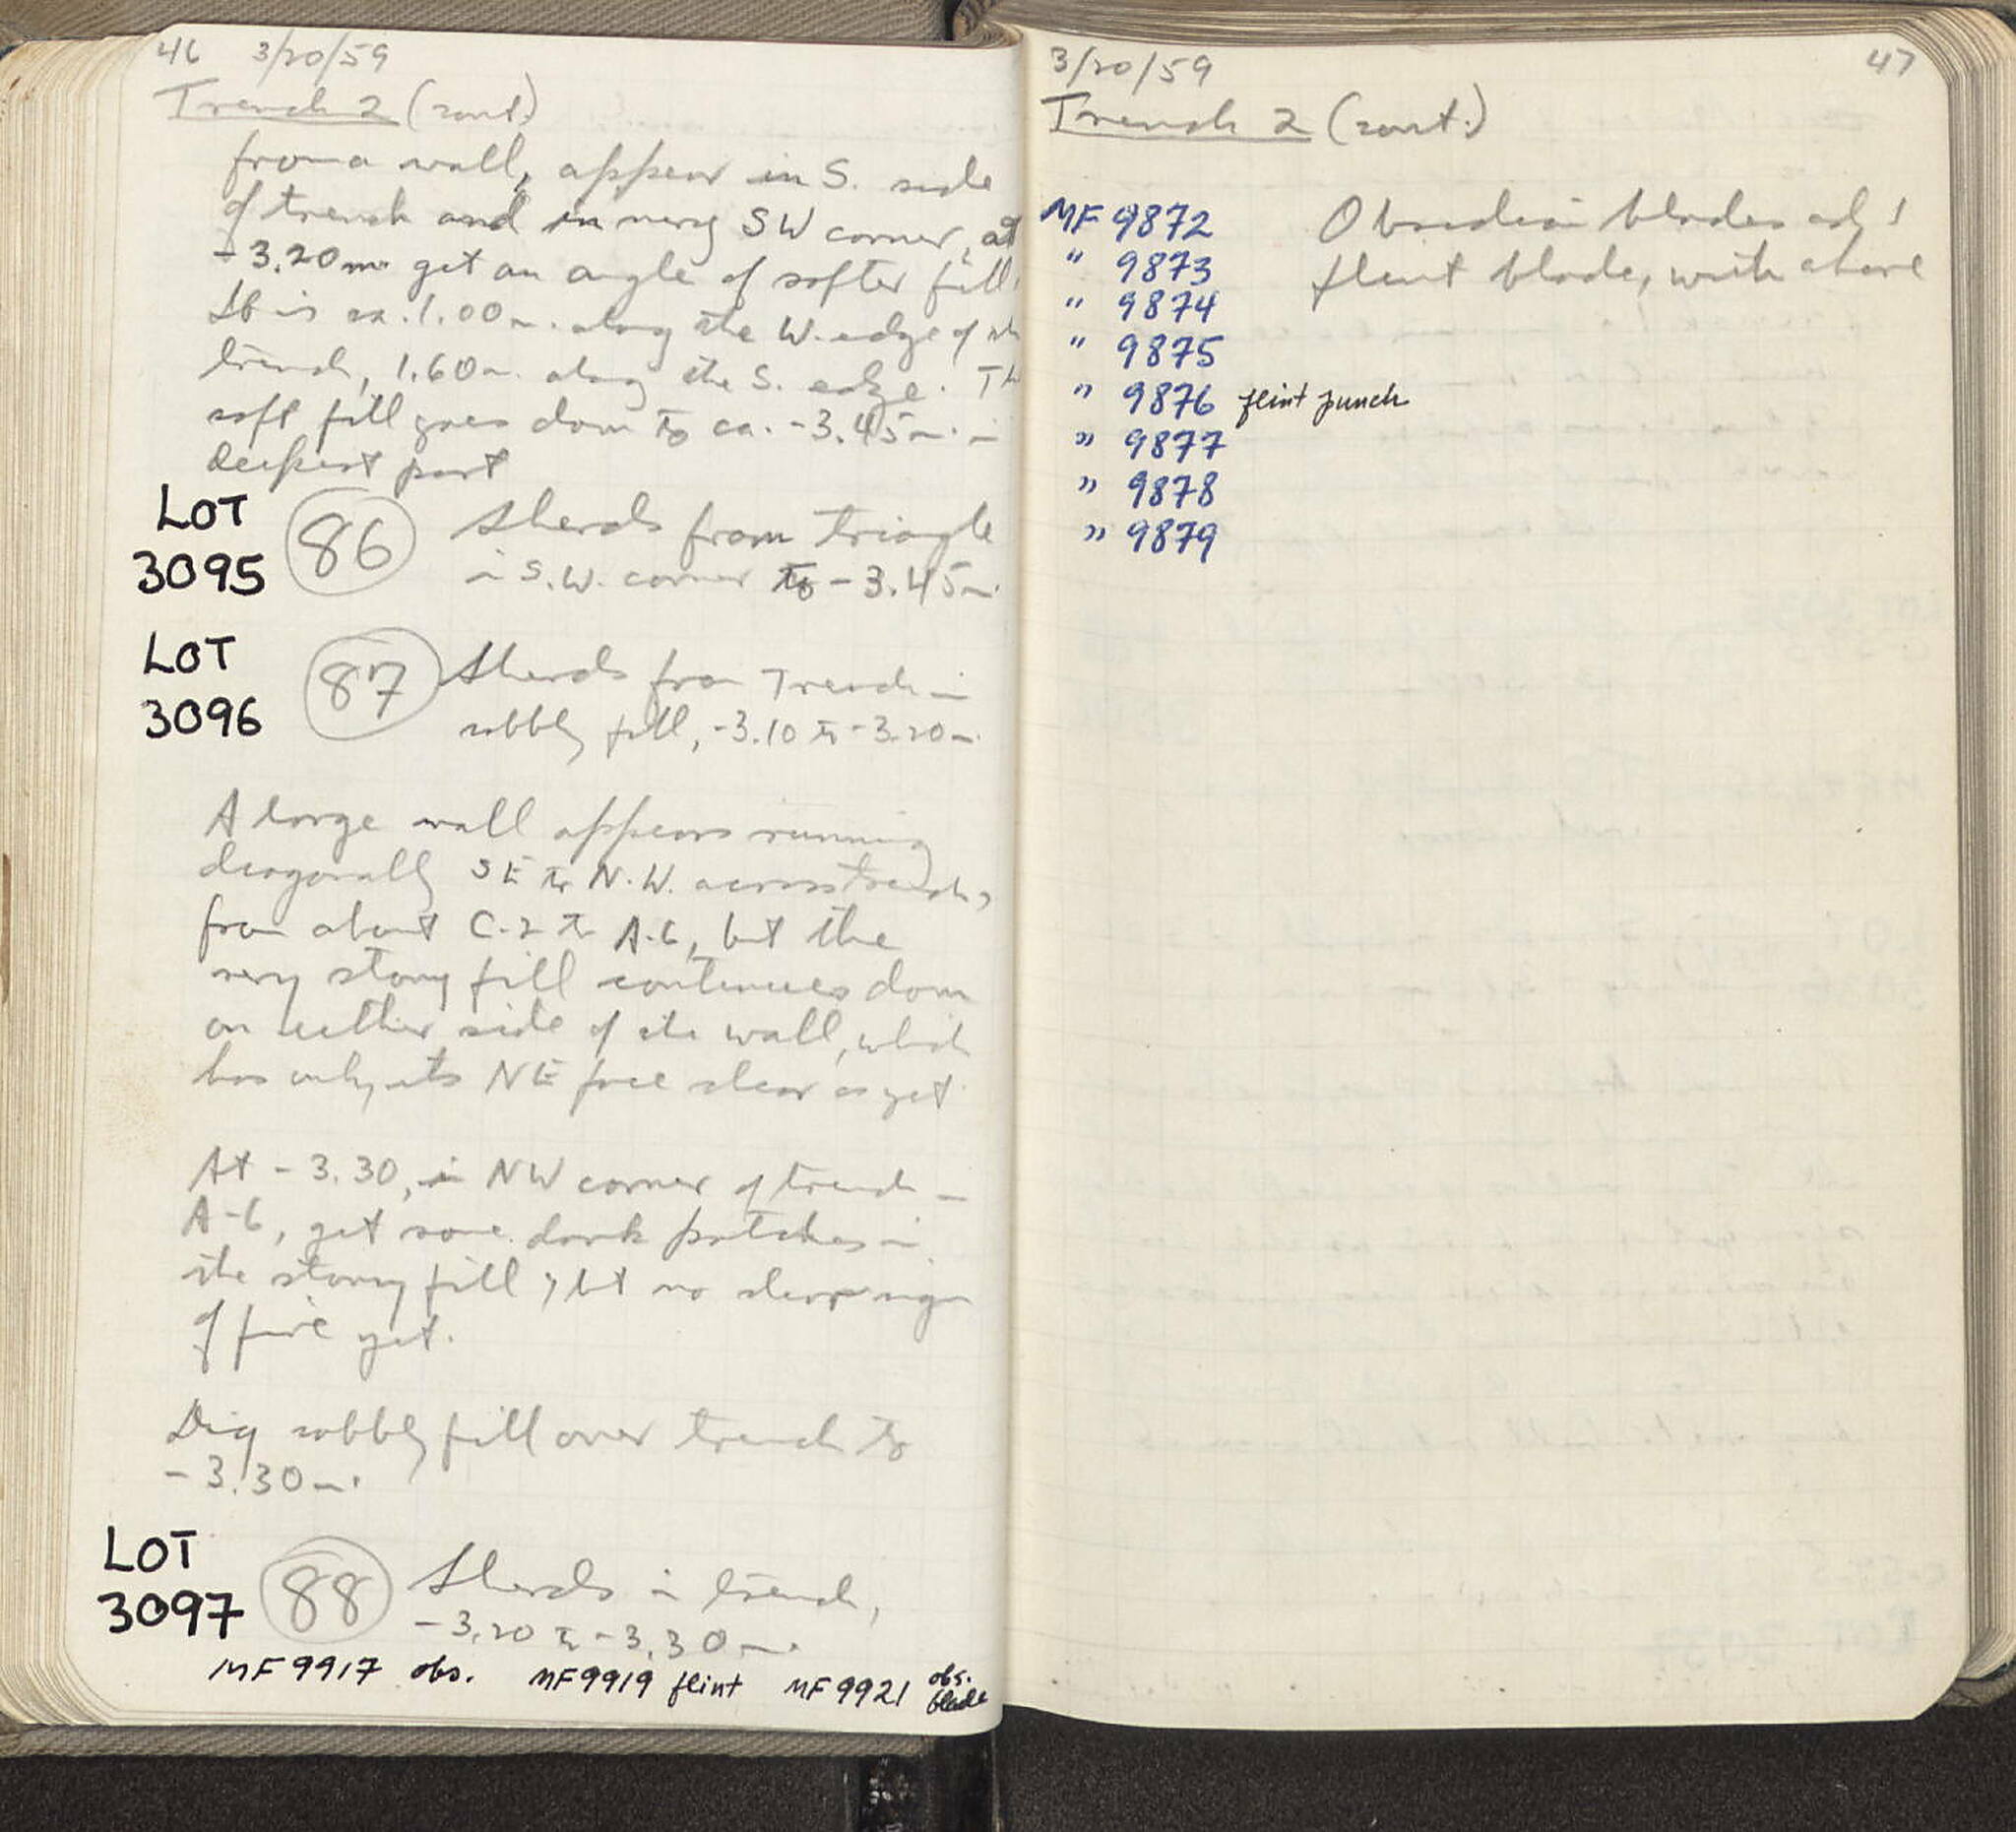 46 3/20/59
Trench 2 (cont.)
from a wall, appear in S. side
of trench and in very SW corner, at
-3.20m. get an angle of softer fill.
It is ca. 1.00m. along the W. edge of the
trench, 1.60m. along the S. edge. The
soft fill goes down to ca. -3.45m. in
deepest part
LOT 3095 86 Sherds from triangle
in S.W. corner to -3.45m.
LOT 3096 87 Sherds from Trench in
cobbly fill, -3.10 to -3.20m.
A large wall appears running
diagonally SE to N.W. across trench,
from about C-2 to A-6, but the
very stony fill continues down
on either side of the wall, which
has only its NE face clear as yet
At -3.30, in NW corner of trench -
A-6, get some dark patches in
the stony fill, but no clear sign
of fire yet.
Dig cobbly fill over trench to
-3.30m.
LOT 3097 88 Sherds in trench,
-3.20 to -3.30m.
MF 9917 obs. MF 9919 flint MF 9921 obs. blade
3/20/59 47
Trench 2 (cont.)
MF 9872 Obsidian blades and 1
" 9873 flint blade, with above
" 9874
" 9875
" 9876 flint punch
" 9877
" 9878
" 9879